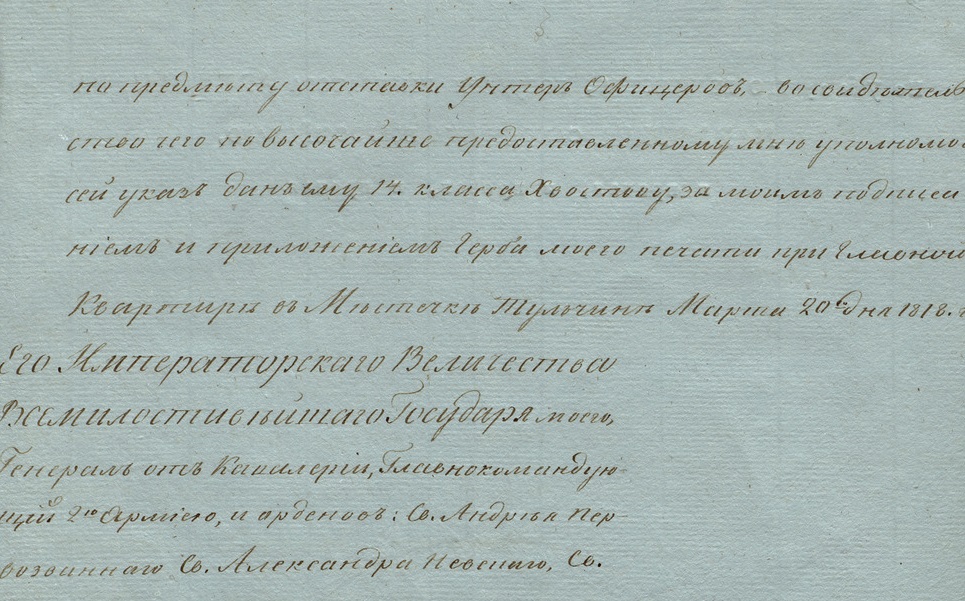 по предмѣту отставки Унтеръ Офицеровъ, во свидѣтель
ство чего по высочайше предоставленному мнѣ уполномо
сей указъ данъ ему 14. класса Хвостову, за моимъ подписа
нiемъ и приложенiемъ Герба моего печати при Главной
Квартирѣ въ Мѣстечкѣ Тульчинѣ Марта 20го дня 1818. г
Его Императорскаго Величества
Всемилостивѣйшаго Государя моего,
Генералъ отъ Кавалерiи, Главнокомандую
щiй 2ю Армiею, и орденовъ: Св. Андрѣя Пер
возваннаго Св. Александра Невскаго, Св.